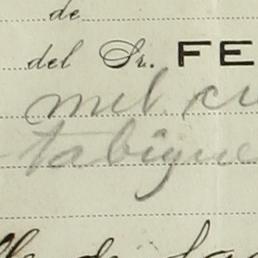 de
del Sr. FE
mil cu
tabique
de